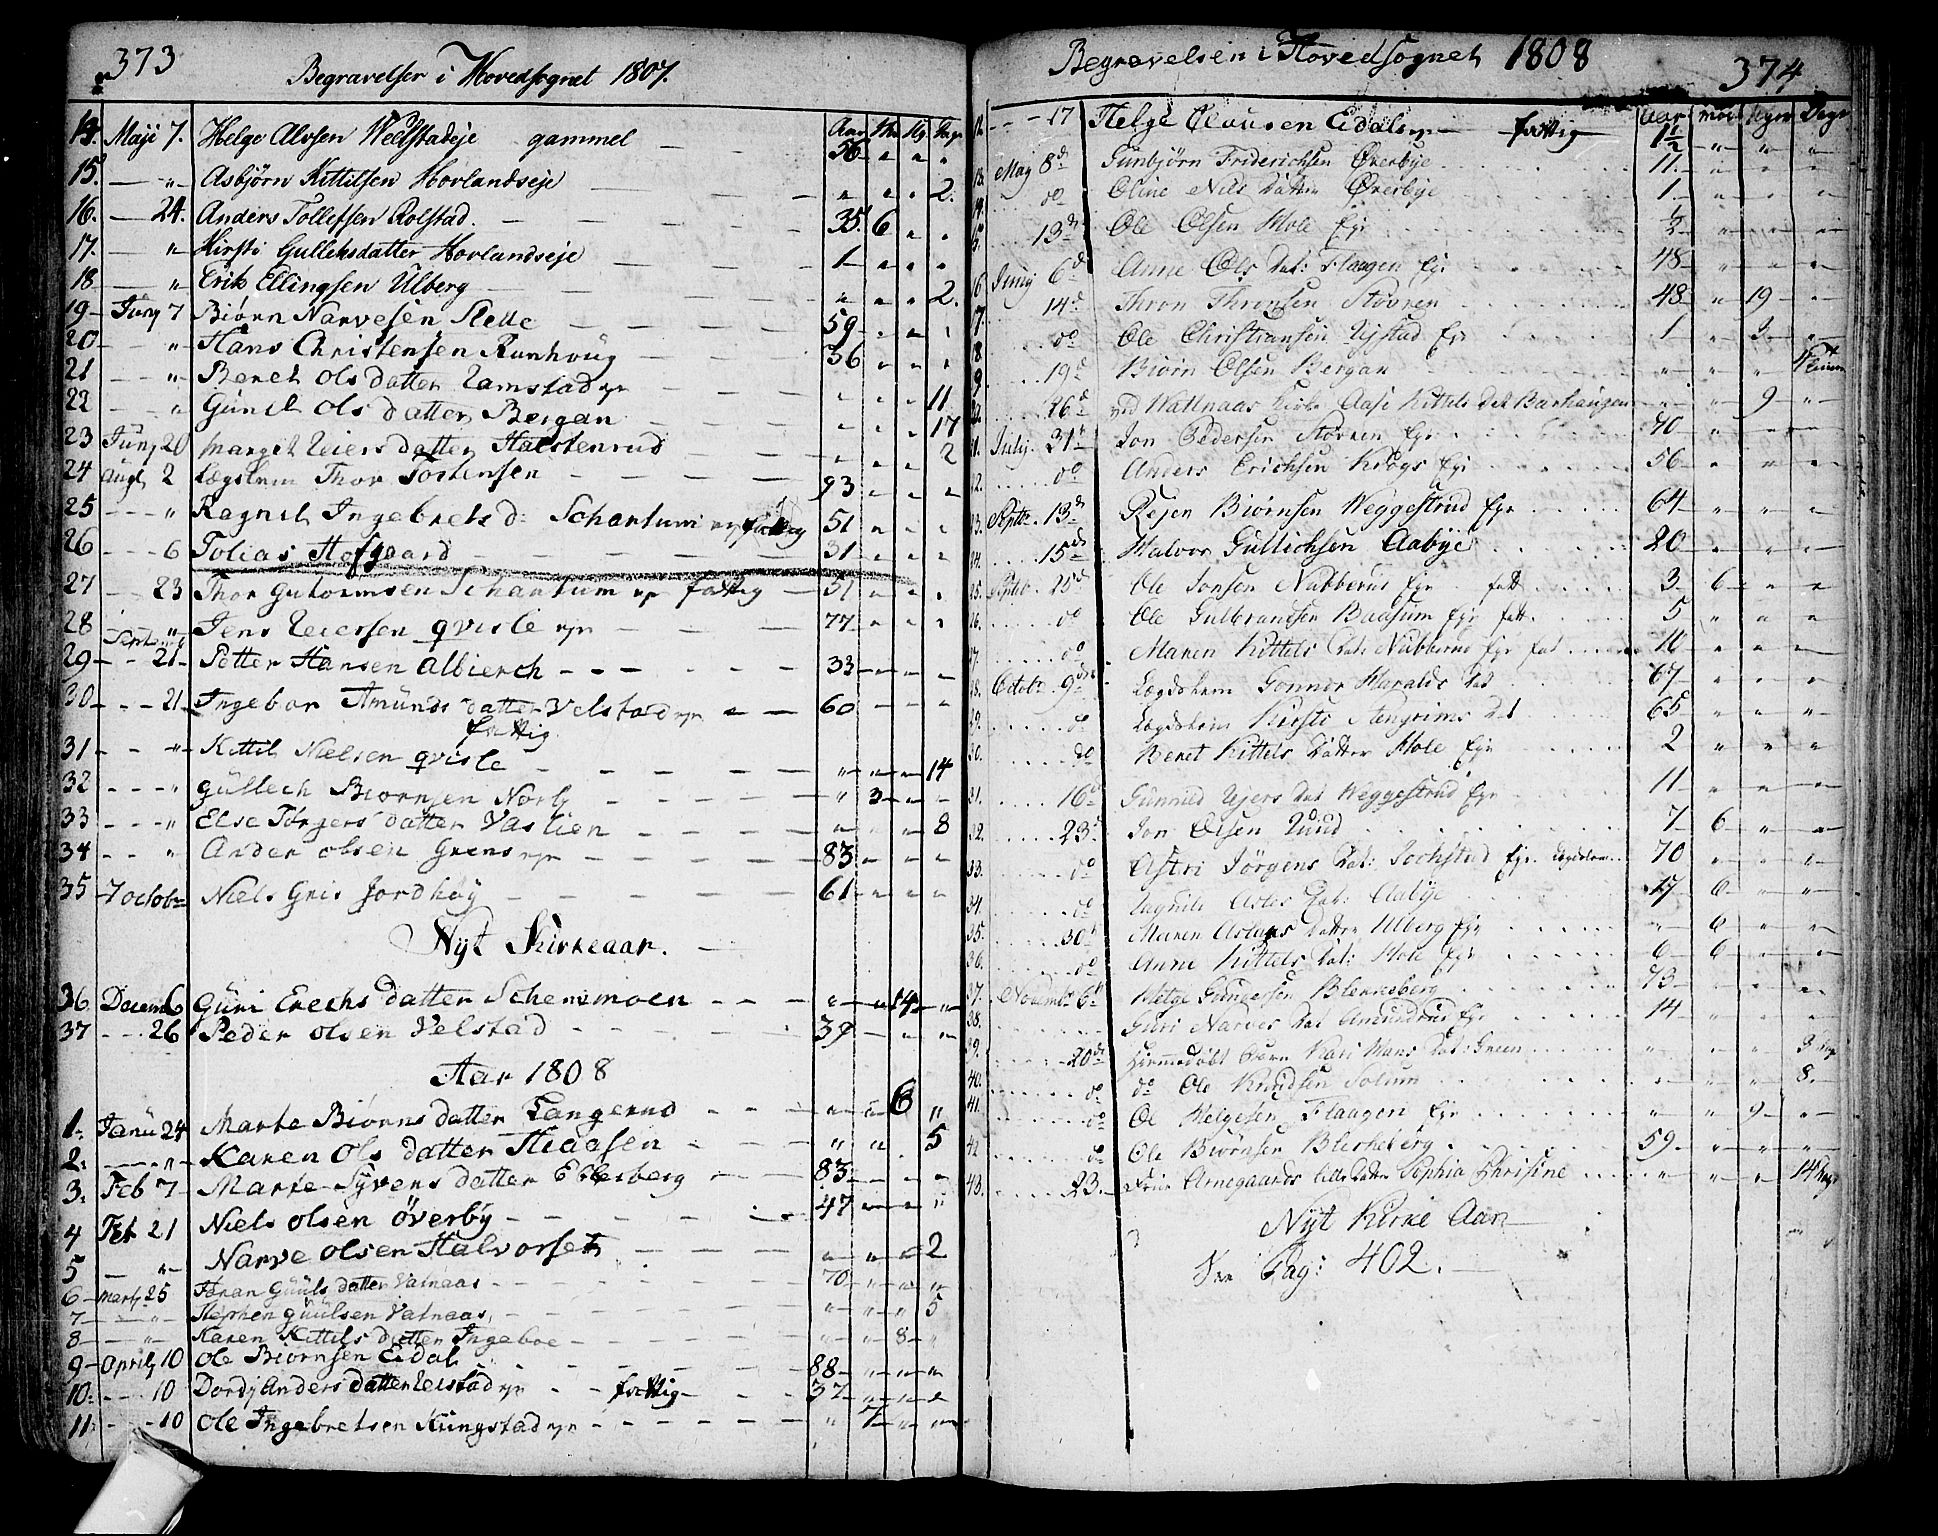 373
Begravelser i Hovedsognet 1807.
Aar Mg. Dage
14. Maji 7. Helge Alvsen Wellstadeje gammel 56 " " "
15. — " Asbjörn Kittilsen Hovlandseje " " " 2.
16. — 24. Anders Tollefsen Rolstad 35 6 " "
17. — " Kirsti Gulleksdatter Hovlandseje 1 " " "
18 — " Erik Ellingsen Ulberg " " " 2.
19 Juny 7 Biørn Narvesen Slette 59 " " "
20 — " Hans Christensen Runhoug 36 " " "
21 — " Beret Ols datter Ramstad 11
22 — " Gunil Ols datter Bergan " " " 17
23 Juny 20 Margit Reiers datter Halstenrud " " " 2
24 Augt 2 Lægslem Thor Torstensen 93 " " "
25 — " Ragnil Ingebrets d: Schartum fattig 51 " " "
26 — 6 Tolias Hofgaard 31 " " "
27 — 23 Thor Gutormsen Schartum fattig 51 " " "
28 — " Jens Reiersen qvisle 77 " " "
29 Septemb 21 Petter Hansen albierch 33 " " "
30 — 21 Ingebor Amunds datter Velstad 60 " " "
fattig
31 — " Kittil Nielsen qvisle " " " 14
32 — " Gullech Biørnsen Norby " 3 " "
33 — " Else Törgers datter Vaslien " " " 8
34 — " Ander olsen Grens 83 " " "
35 7 octobr Niels Gris Jordhøy 61 " " "
Nyt Kirkeaar.
36 Decemb 6 Guri Erechs datter Schensmoen " " 14 "
37 — 26 Peder olsen Velstad 39 " " "
Aar 1808
1. Janu 24 Marte Biørns datter Tangerud " " 6 "
2. — " Karen Ols datter Haasen " " 5
3. Feb 7 Marte Syvens datter Ellesberg 83 " " "
4 Feb 21 Niels olsen överby 47 " " "
5 — " Narve olsen Halvorset " " " 2
6 Marty 25 Jøran Guuls datter Vatnaas 70 " " "
7 — " Stephen guulsen Vatnaas " " " 5
8 — " Karen Kittils datter Ingeboe " " 8 "
9 Aprily 10 Ole Biørnsen Eidal 88 " " "
10. — 10 Dordj Anders datter Velstad fattig 37 " " "
11 — 10 Ole Ingebretsen Kungstad " 7 " "
Begravelsen i Hovedsognet 1808
374
Aar Dage
12. — 17 Helge Clausen Eidals fattig 1½ " " "
13. May 8d Gunbjørn Friderichsen Øverbye 11 " " "
14. do Oline Nils datter Øverbye 1 " " "
15. 13d Ole Olsen Mole Eje ½ " " "
16 Juny 6d Anne Ols dat: Flaagen Eje 48 " " "
17. 14d Thron Thronsen Støvren 48 " 19 "
18. do Ole Christiansen Ujstad Eje 1 " 3 "
19. 19d Biørn Olsen Bergan " " "
20. 26d ved Wattnaas Kirke Aase Kittels Dat Barhaugen " " 9 "
21. July. 31t Jon Pedersen Støvren Eje 40 " " "
22. do Anders Erichsen Krogs Eje 56 " " "
23. Septbr. 13d Rejer Biørnsen Weggestrud Eje 64 " " "
24. 15d Halvor Gullichsen Aabye 20 " " "
25. Septbr. 25d Ole Jonsen Nubberud Eje fatt 3 6 " "
26. do Ole Gulbrandsen Baasum Eje fatt. 5 " " "
27. do Maren Kittels Dat: Nubberud Eje fat 10 " " "
28. Octobr. 9de Lægdslem Gonner Haralds dat 67 " " "
29. do Lægdslem Kirsti Stengrims Dat 65 " " "
30. do Beret Kittels Datter Mole Eje 2 " " "
31. 16d Gunnild Ujers dat Weggestrud Eje 11 " " "
32. 23d Jon Olsen Ruud 7 6 " "
33. do Astri Jörgens Dat: Sochstad Eje. Lægdslem 70 " " "
34. do Ragnild Asles Dat: Aabye 17 6 " "
35. 30t Maren Aslags Datter Ulberg Eje " 6 " "
36. do Anne Kittels Dat: Mole Eje 6 6 " "
37. Novembr 6t Helge Gundersen Blerkeberg 73 " " "
38. Guri Narves Dat Amundrud Eje 14 " " "
39. 20de Hiemmedøbt Barn Kari Hans Dat: Green " " " 3 Dage
40. do do Ole Knudsen Solum " " " 8.
41. do Ole Helgesen Flaagen Eje " " 9 "
42 do Ole Biørnsen Blerkeberg 59 " " "
43. 23. Frue Arnegaards lille Datter Sophia Christine " " " 14 Dage
Nyt Kirke Aar
See Pag: 402.